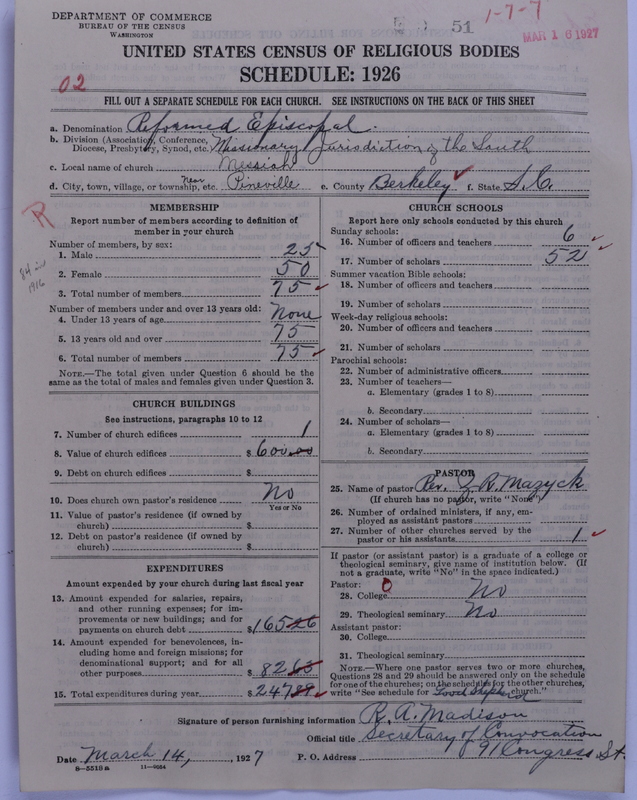 DEPARTMENT OF COMMERCE
BUREAU OF THE CENSUS
WASHINGTON
51
1-7-7
MAR 16 1927
UNITED STATES CENSUS OF RELIGIOUS BODIES
SCHEDULE: 1926
02
FILL OUT A SEPARATE SCHEDULE FOR EACH CHURCH. SEE INSTRUCTIONS ON THE BACK OF THIS SHEET
a. Denomination Reformed Episcopal.
b. Division (Association, Conference, Diocese, Presbytery, Synod, etc. Missionary Jurisdiction of the South
c. Local name of church Messiah
d. City, town, village, or township, etc. Near Pineville e. County Berkeley f. State S.C.
R
84 in 1916
MEMBERSHIP
Report number of members according to definition of
member in your church
Number of members, by sex:
1. Male 25
2. Female 50
3. Total number of members 75
Number of members under and over 13 years old:
4. Under 13 years of age None
5. 13 years old and over 75
6. Total number of members 75
NOTE.—The total given under Question 6 should be
same as the total of males and females given under Question 3.
CHURCH BUILDINGS
See instructions, paragraphs 10 to 12
7. Number of church edifices 1
8. Value of church edifices $ 600.00
9. Debt on church edifices $
10. Does church own pastor's residence No
Yes or No
11. Value of pastor's residence (if owned by
church) $
12. Debt on pastor's residence (if owned by
church) $
EXPENDITURES
Amount expended by church during last fiscal year
13. Amount expended for salaries, repairs,
and other running expenses; for im-
provements or new buildings; and for
payments on church debt $ 165 26
14. Amount expended for benevolences, in-
cluding home and foreign missions; for
denominational support; and for all
other purposes $ 82 63
15. Total expenditures during year $ 247 89
CHURCH SCHOOLS
Report here only schools conducted by this church
Sunday schools:
16. Number of officers and teachers 6
17. Number of scholars 52
Summer vacation Bible schools:
18. Number of officers and teachers
19. Number of scholars
Week-day religious schools:
20. Number of officers and teachers
21. Number of scholars
Parochial schools:
22. Number of administrative officers
23. Number of teachers—
a. Elementary (grades 1 to 8)
b. Secondary
24. Number of scholars—
a. Elementary (grades 1 to 8)
b. Secondary
PASTOR
25. Name of pastor Rev. Z. R. Mazyck
(If church has no pastor, write "None")
26. Number of ordained ministers, if any, em-
ployed as assistant pastors
27. Number of other churches served by the
pastor or his assistants 1
If pastor (or assistant pastor) is a graduate of a college or
theological seminary, give name of institution below. (If
not a graduate, write "No" in the space indicated.)
Pastor: 0
28. College No
29. Theological seminary No
Assistant pastor:
30. College
31. Theological seminary
NOTE.—Where one pastor serves two or more churches,
Questions 28 and 29 should be answered only on the schedule
for one of the churches; on the schedules for the other churches,
write "See schedule for Good Shepherd church."
Signature of person furnishing information R. A. Madison
Official title Secretary of Convocation
Date March 14, 1927 P. O. Address 91 Congress St.
8-5518a 11-9054